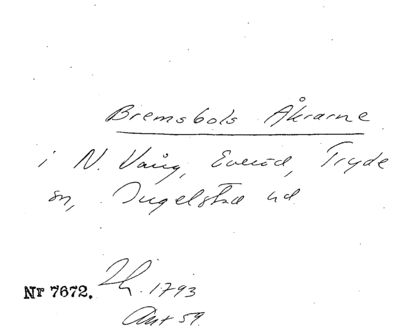 Bremsbols Åkrarne
i N. Vång, Everöd, Tryde
sn, Ingelstad hd
Nr 7672.
1793
Akt 59.